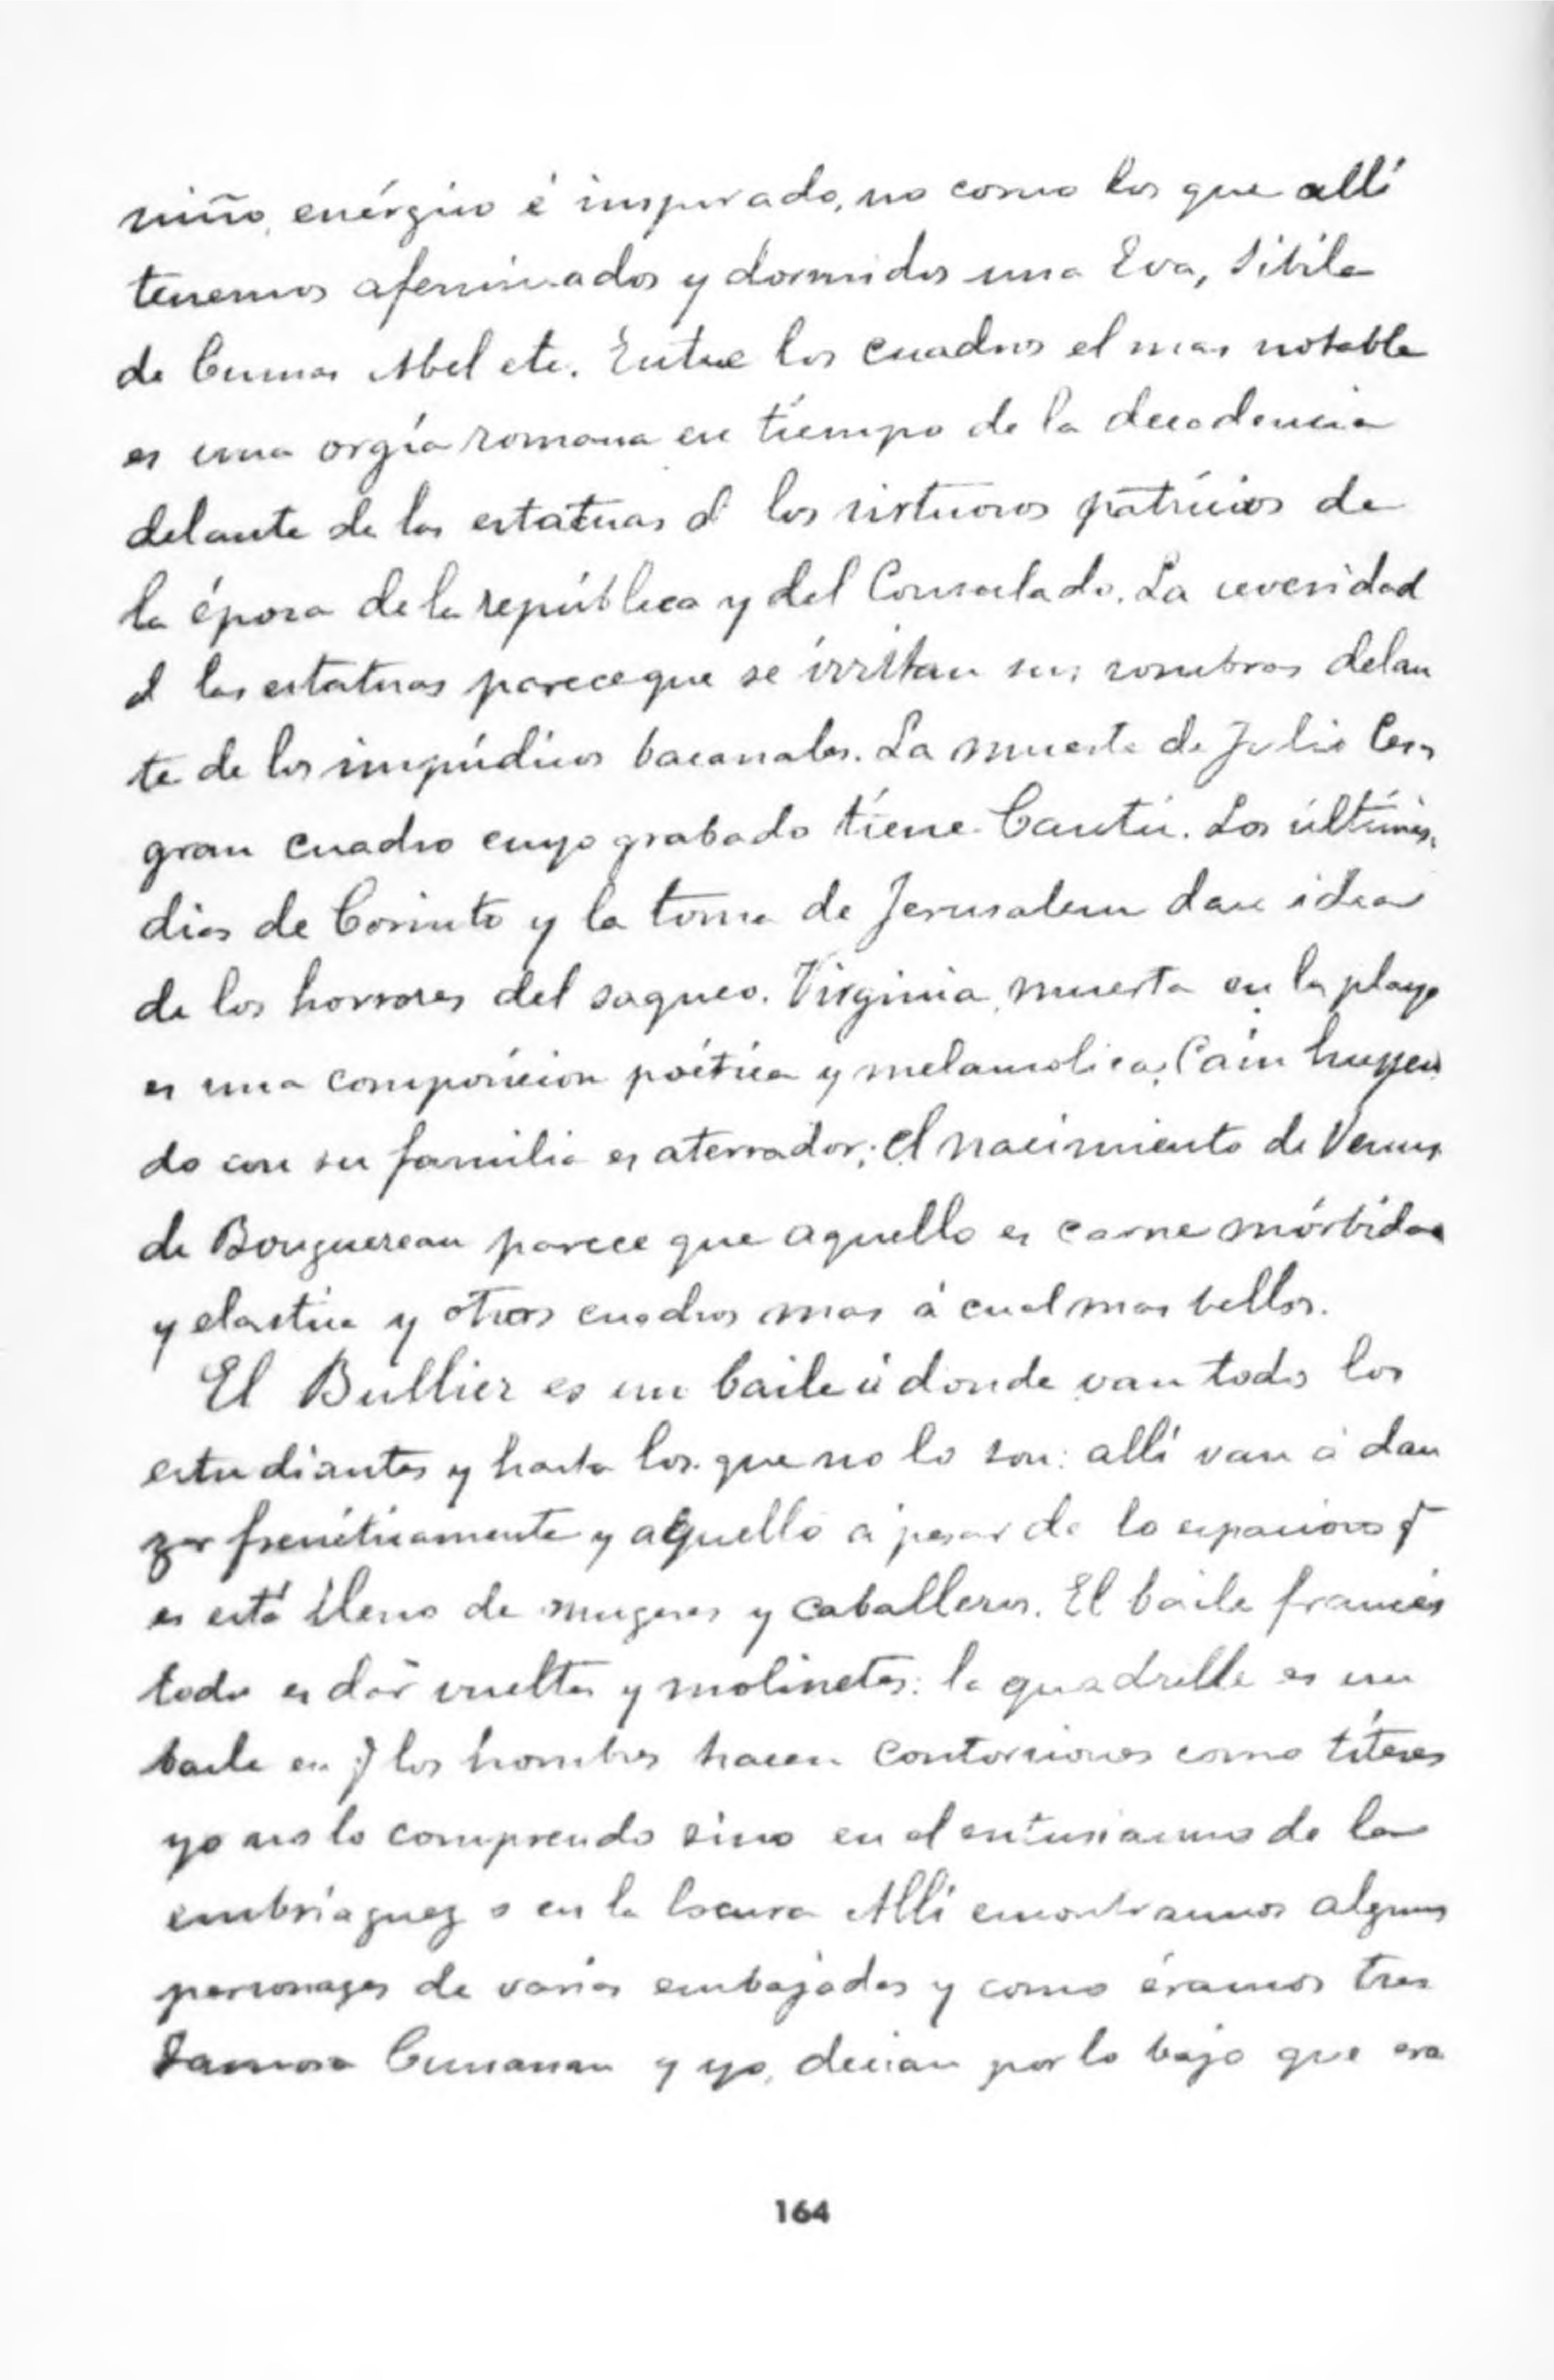 niño, enérgico é inspirado, no como los que allí
tenemos afeminados y dormidos una Eva, Sibila
de Cumas Abel etc. Entre los cuadros el mas notable
es una orgía romana en tiempo de la decadencia
delante de las estatuas d los virtuosos patricios de
la época de la república y del Consulado. La severidad
d las estatuas parece que se irritan sus sombras delan
te de los impúdicos bacanales. La muerte de Julio Cesar
gran cuadro cuyo grabado tiene Cantú. Los últimos
dias de Corinto y la toma de Jerusalem dan idea
de los horrores del saqueo. Virginia, muerta en la playa
es una composicion poética y melancolica; Cain huyen
do con su familia es aterrador; el nacimiento de Venus
de Bouguereau parece que aquello es carne mórbida
y elastica y otros cuadros mas á cual mas bellos.
El Bullier es un baile á donde van todos los
estudiantes y hasta los que no lo son: allí van á dan
zar frenéticamente y aquello a pesar de lo espacioso q
es está lleno de mugeres y caballeros. El baile francés
todo es dar vueltas y molinetes: la quadrille es un
baile en q los hombres hacen contorsiones como títeres
yo no lo comprendo sino en el entusiasmo de la
embriaguez o en la locura Allí encontramos algunos
personages de varias embajadas y como éramos tres
Zamora Cunanan y yo, decian por lo bajo que era
164